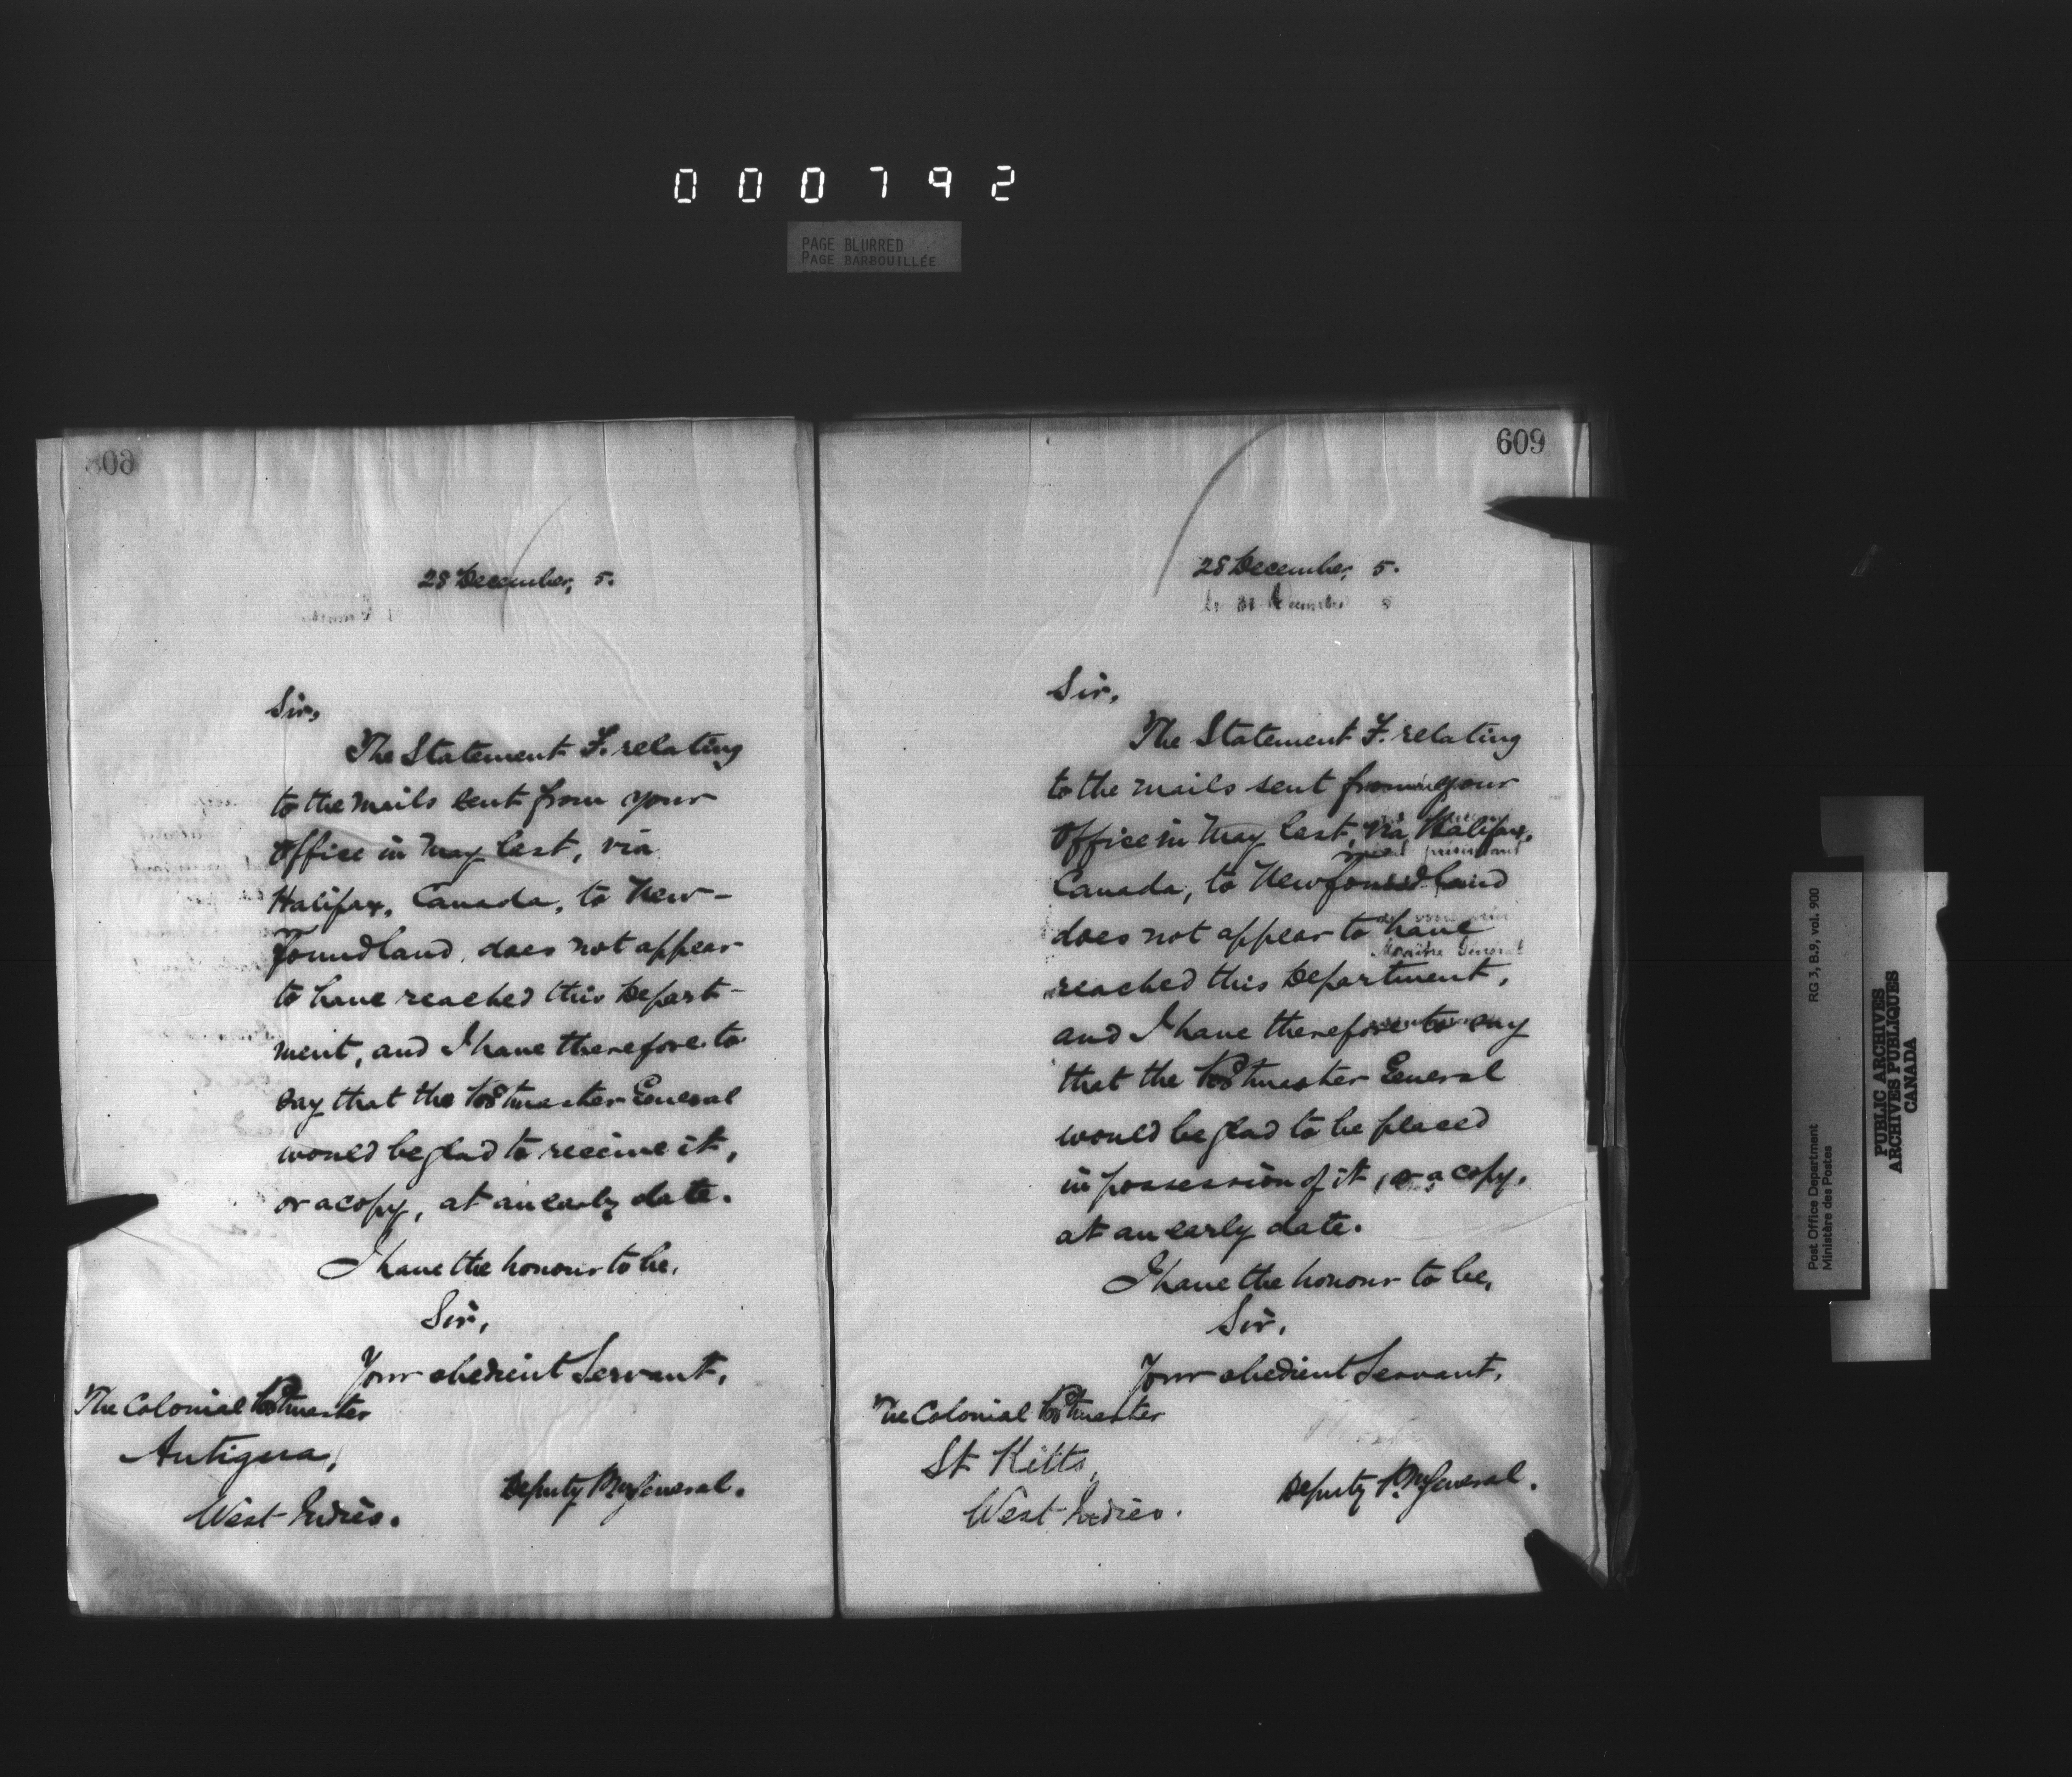 000792
PAGE BLURRED
PAGE BARBOUILLÉE
28 December, 5.
Sir,
The Statement F. relating
to the mails sent from your
Office in May last, via
Halifax, Canada, to New-
foundland, does not appear
to have reached this Depart-
ment, and I have therefore to
say that the Postmaster General
would be glad to receive it,
or a copy, at an early date.
I have the honour to be,
Sir,
Your obedient Servant,
The Colonial Postmaster
Antigua,
West Indies.
Deputy P.M. General.
609
28 December, 5.
Sir,
The Statement F. relating
to the mails sent from your
Office in May last, via Halifax,
Canada, to Newfoundland
does not appear to have
reached this Department,
and I have therefore to say
that the Postmaster General
would be glad to be placed
in possession of it, or a copy,
at an early date.
I have the honour to be,
Sir,
Your obedient Servant,
The Colonial Postmaster
St Kitts,
West Indies.
Deputy P.M. General.
Post Office Department
Ministère des Postes
RG 3, B.9, vol. 900
PUBLIC ARCHIVES
ARCHIVES PUBLIQUES
CANADA